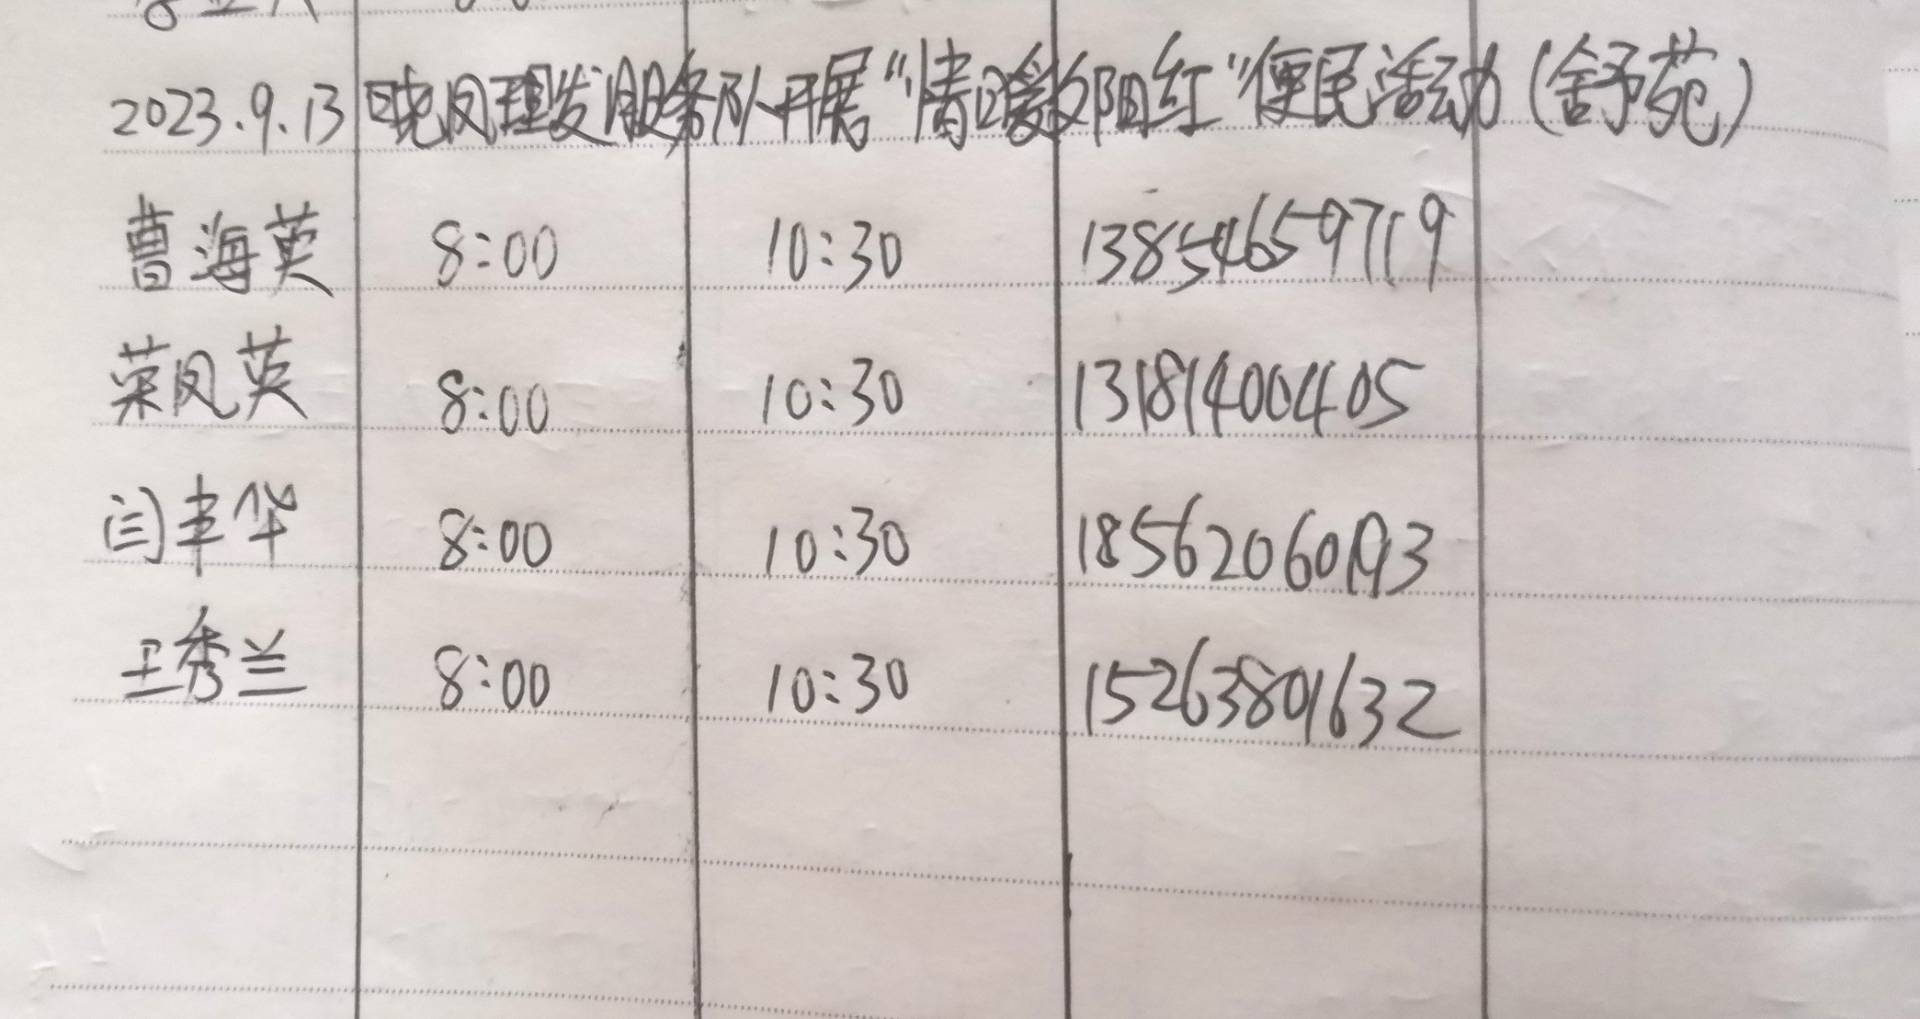 2023.9.13 晓凤理发服务队开展“情暖夕阳红”便民活动(舒苑)
曹海英 8:00 10:30 13854659719
荣凤英 8:00 10:30 13181400405
闫丰华 8:00 10:30 18562060193
王秀兰 8:00 10:30 15263801632